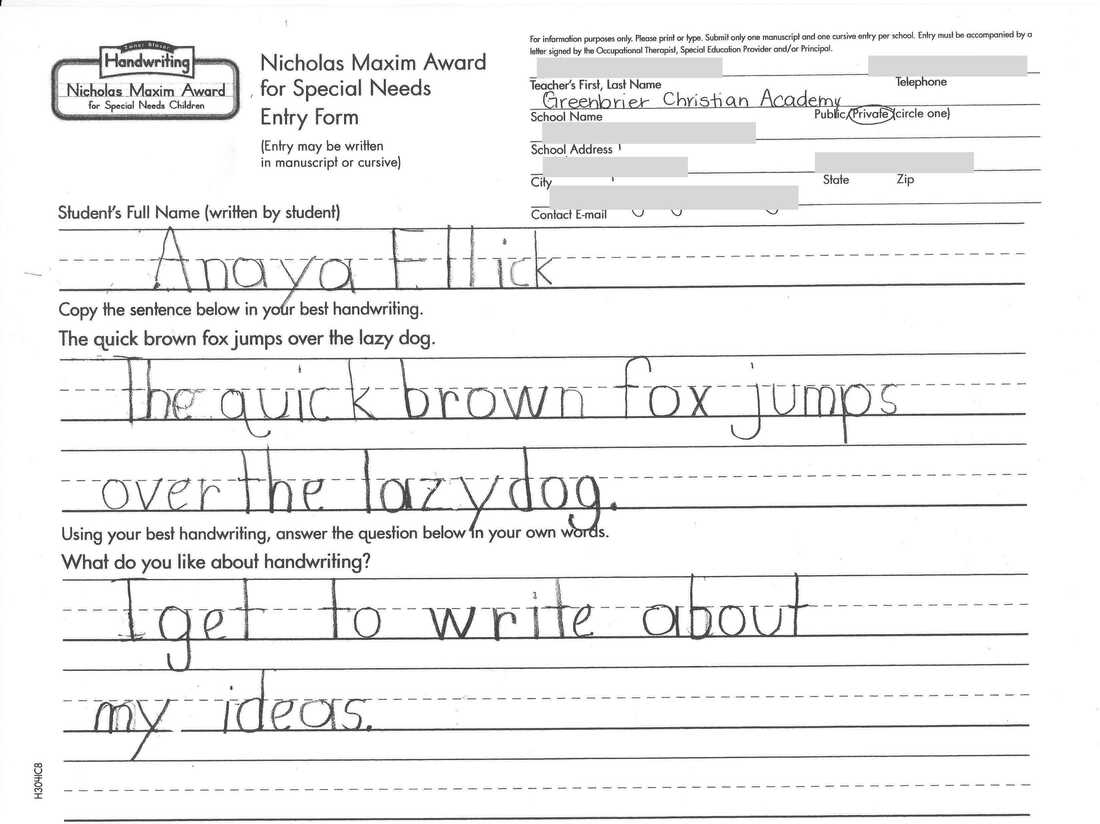 Zaner-Bloser
Handwriting
Nicholas Maxim Award
for Special Needs Children
Nicholas Maxim Award
for Special Needs
Entry Form
(Entry may be written
in manuscript or cursive)
For information purposes only. Please print or type. Submit only one manuscript and one cursive entry per school. Entry must be accompanied by a
letter signed by the Occupational Therapist, Special Education Provider and/or Principal.
Teacher's First, Last Name Telephone
Greenbrier Christian Academy
School Name Public/Private (circle one)
School Address
City State Zip
Contact E-mail
Student's Full Name (written by student)
Anaya Ellick
Copy the sentence below in your best handwriting.
The quick brown fox jumps over the lazy dog.
The quick brown fox jumps
over the lazy dog.
Using your best handwriting, answer the question below in your own words.
What do you like about handwriting?
I get to write about
my ideas.
H304IC8